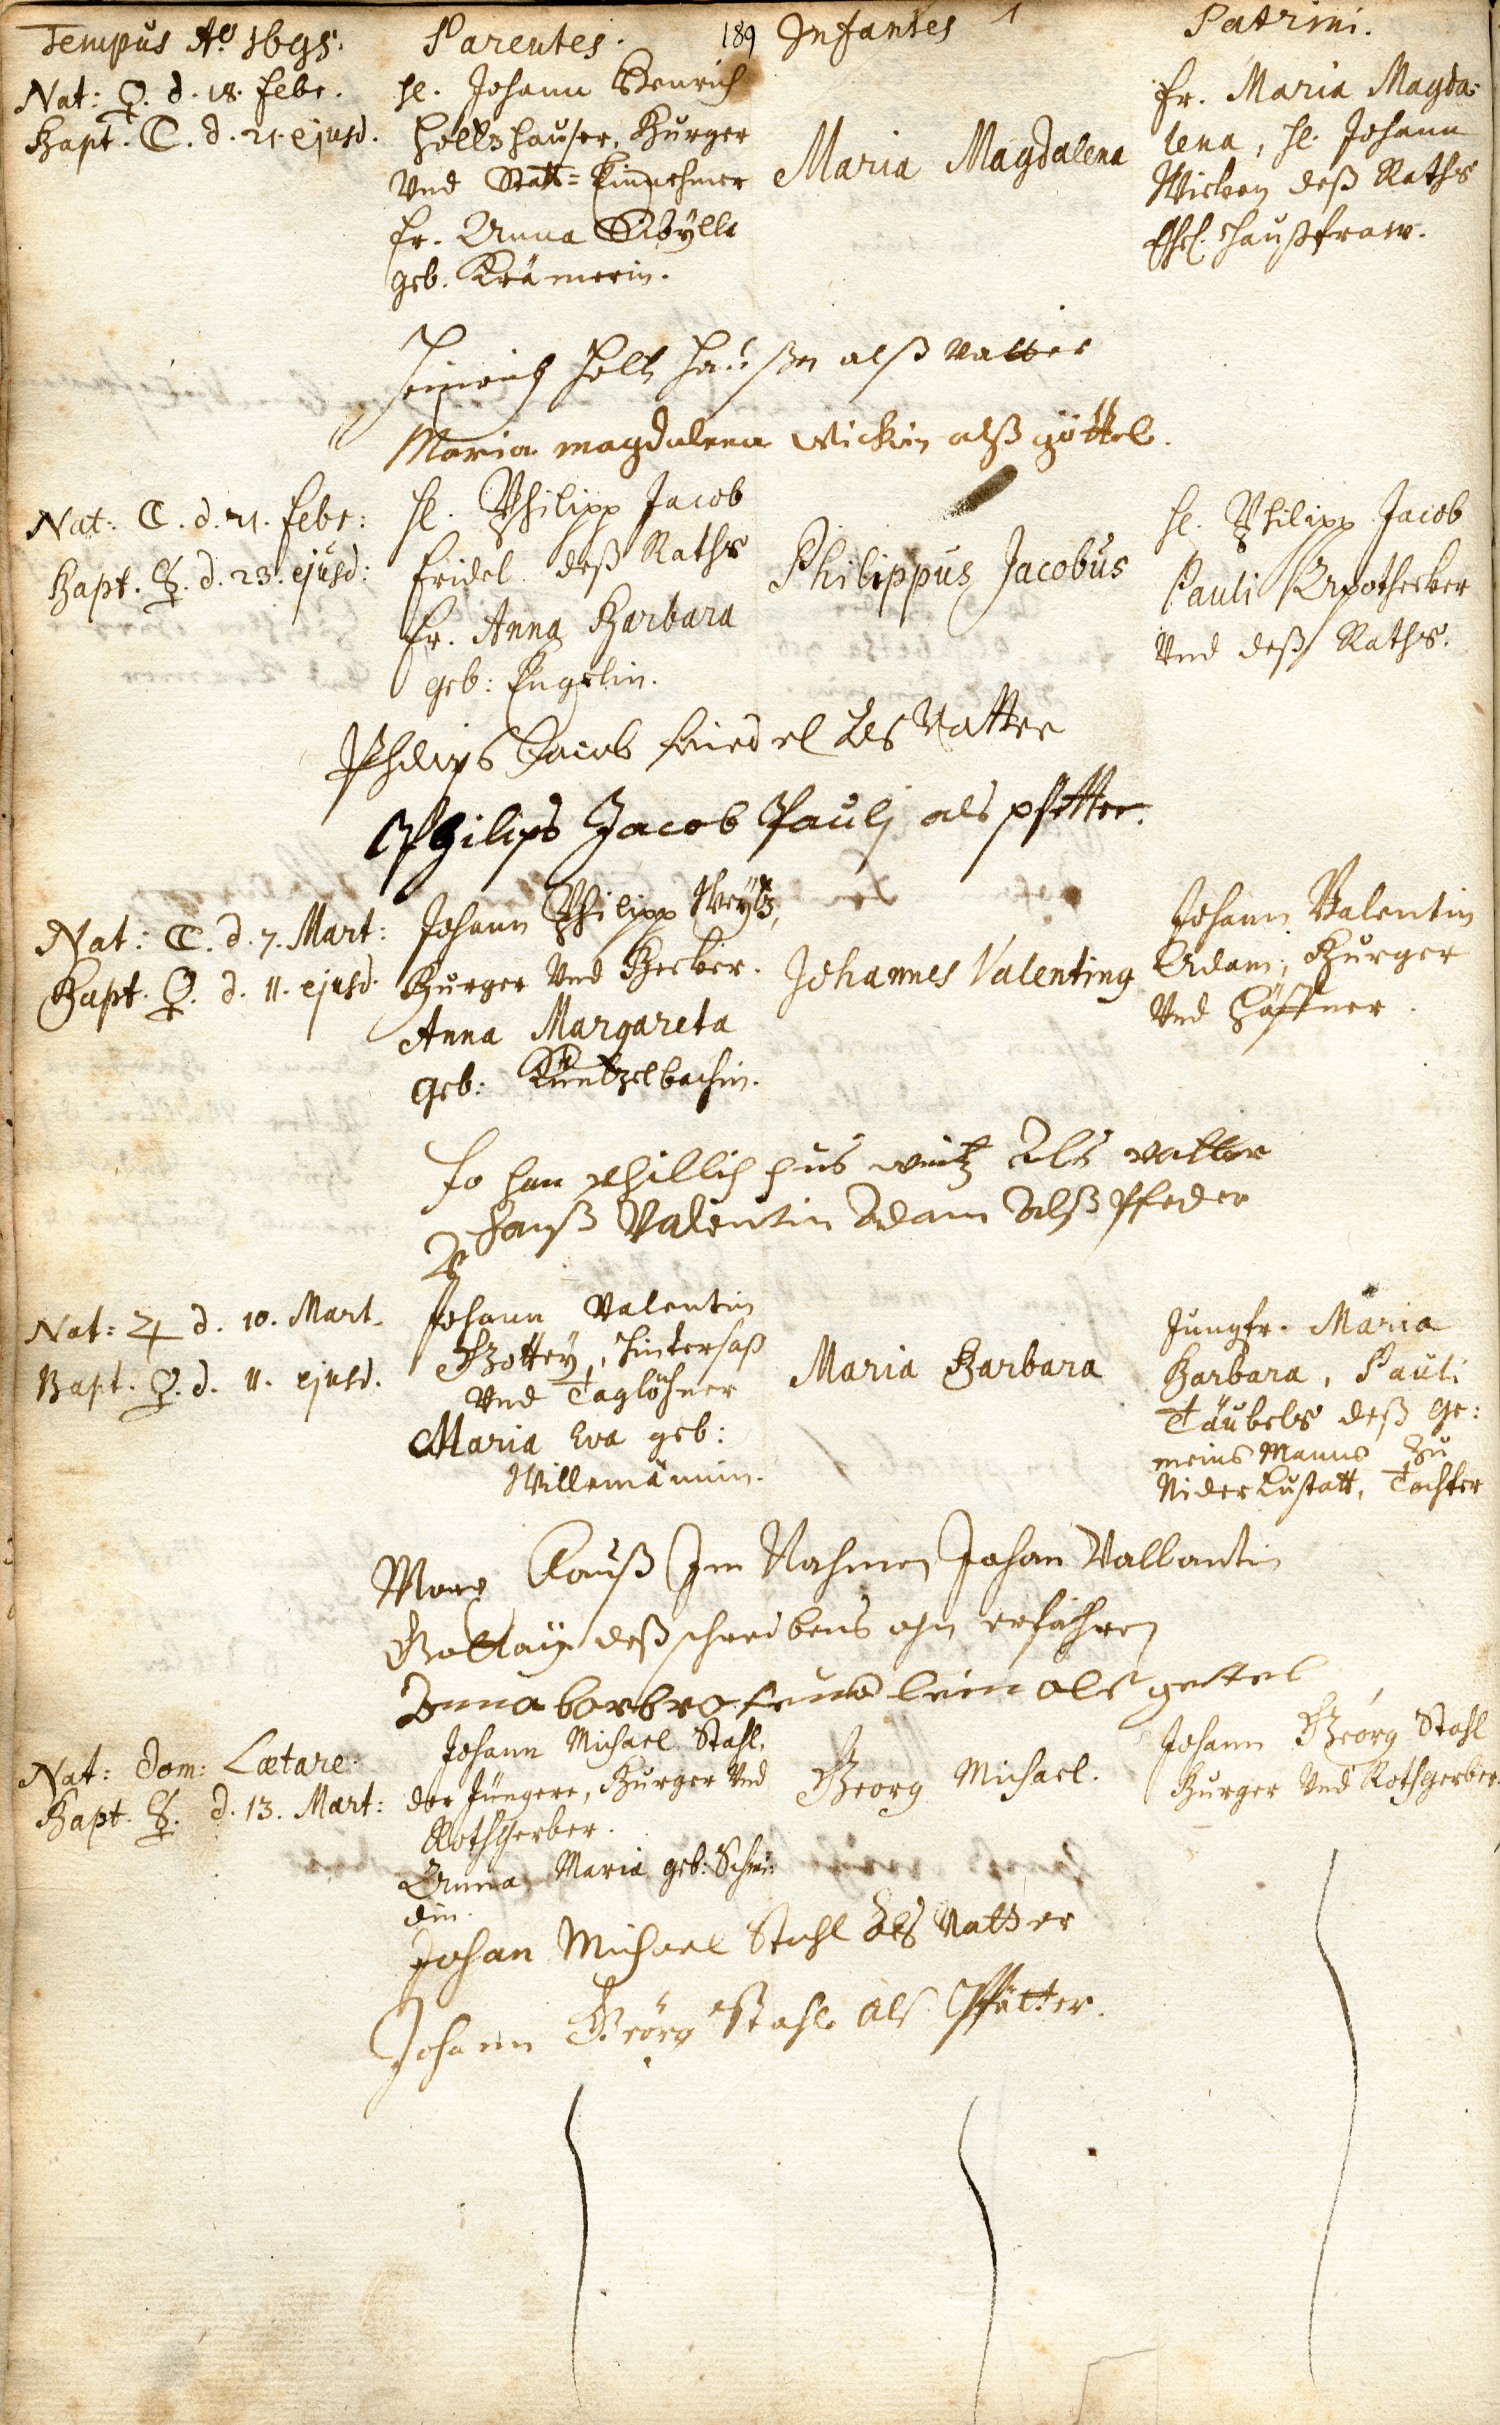 Tempus Aō 1695.
Parentes.
189
Infantes
1
Patrini.
Nat: ♀. d. 18. Febr.
Bapt. ☾. d. 21. ejusd.
H. Johann Henrich
Holtzhauser, Burger
Vnd Statt-Einnehmer
Fr. Anna Sibylla
geb. Krämerin.
Maria Magdalena
Fr. Maria Magda-
lena, H. Johann
Wicken deß Raths
Ehel. Haußfraw.
Heinrich Holtz Haußer alß Vatter
Maria magdalena Wickin alß göttel.
Nat: ☾. d. 21. Febr:
Bapt. ☿. d. 23. ejusd:
H. Philipp Jacob
Fridel deß Raths
Fr. Anna Barbara
geb: Engelin.
Philippus Jacobus
H. Philipp Jacob
Pauli Apothecker
Vnd deß Raths.
Philips Jacob Friedel Als Vatter
Philips Jacob Paulj als pfetter.
Nat: ☾. d. 7. Mart:
Bapt. ♀. d. 11. ejusd.
Johann Philipp Weytz,
Burger Vnd Becker.
Anna Margareta
geb: Küntzelbachin.
Johannes Valentinq
Johann Valentin
Adam, Burger
Vnd Häffner.
Jo han phillip pus weitz Als vatter
Hanß Valentin Adam Alß Pfeder
Nat: ♃ d. 10. Mart.
Bapt. ♀. d. 11. ejusd.
Johann Valentin
Bottey, Hintersaß
Vnd Taglöhner
Maria Eva geb:
Willemännin.
Maria Barbara
Jungfr. Maria
Barbara, Pauli
Täubels deß Ge:
meins Manns Zu
Nider Lustatt, Tochter
Kauß Im Nahmen Johan Vallantin
Bottaÿ deß schreibens ohn erfahren
Anna barbra als gettel
Nat: Dom: Lætare.
Bapt. ☿. d. 13. Mart:
Johann Michael Stahl,
der Jüngere, Burger Vnd
Rothgerber.
Anna Maria geb: Schmi:
din.
Georg Michael.
Johann Geörg Stahl
Burger Vnd Rothgerber.
Johan Michael Stahl Als Vatter
Johann Geörg Stahl als Pfätter.